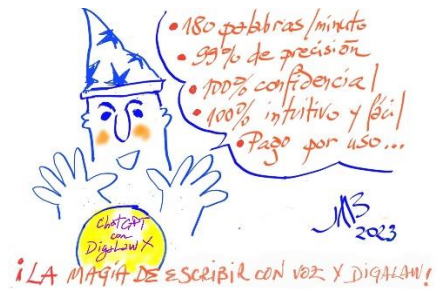 • 180 palabras/minuto
• 99% de precisión
• 100% confidencial
• 100% intuitivo y fácil
• Pago por uso...
ChatGPT
con
DigaLaw X
2023
¡LA MAGIA DE ESCRIBIR CON VOZ Y DIGALAW!